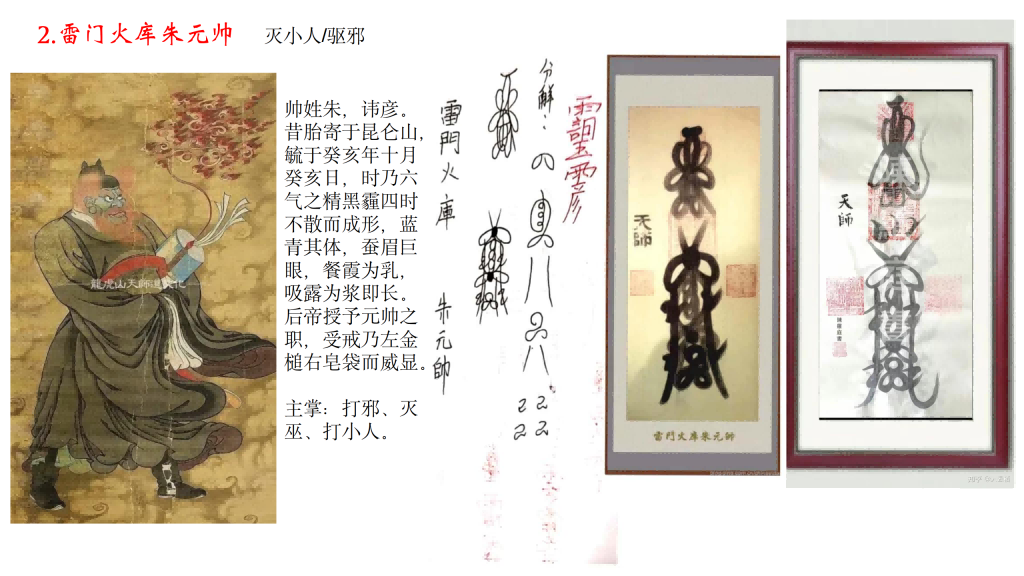 2.雷门火库朱元帅
灭小人/驱邪
帅姓朱，讳彦。
昔胎寄于昆仑山，
毓于癸亥年十月
癸亥日，时乃六
气之精黑霾四时
不散而成形，蓝
青其体，蚕眉巨
眼，餐霞为乳，
吸露为浆即长。
后帝授予元帅之
职，受戒乃左金
槌右皂袋而威显。
主掌：打邪、灭
巫、打小人。
雷門火庫 朱元帥
分解：
天師
雷門火库朱元帥
天師